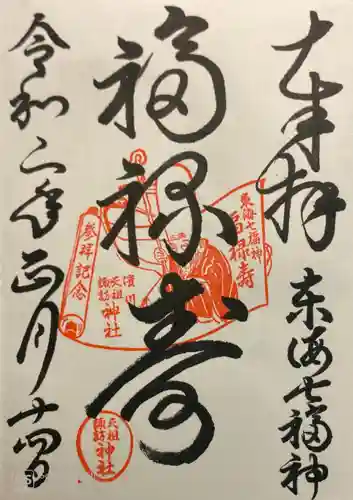 奉拝
東海七福神
福禄寿
令和二年正月十四日
東海七福神
福禄寿
参拝記念
濱川
天祖
諏訪
神社
天祖
諏訪
神社